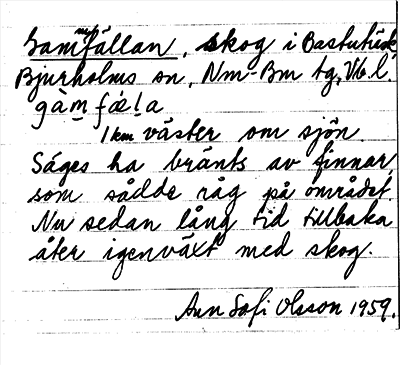 Gammfällan, skog i Bastuträsk
Bjurholms sn, Nm-Bm tg, Vb. l.
gàm̲ fǽl̲a
1 km väster om sjön.
Säges ha bränts av finnar,
som sådde råg på området.
Nu sedan lång tid tillbaka
åter igenväxt med skog.
Ann Sofi Olsson 1959.